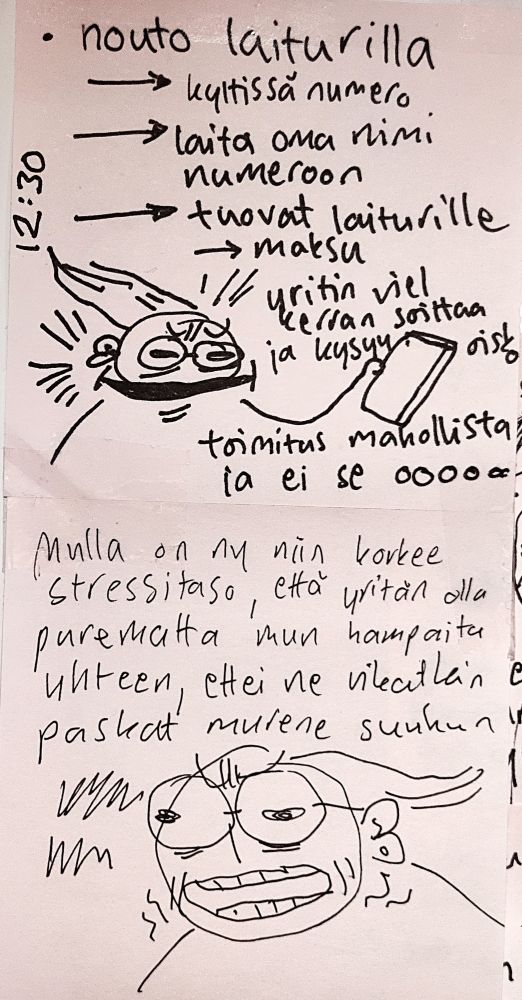 • nouto laiturilla
→ kyltissä numero
→ laita oma nimi
numeroon
→ tuovat laiturille
→ maksu
12:30
yritin viel
kerran soittaa
ja kysyy oisko
toimitus mahollista
ja ei se oooo
Mulla on ny niin korkee
stressitaso, että yritän olla
purematta mun hampaita
yhteen, ettei ne vikatkin
paskat murene suuhun